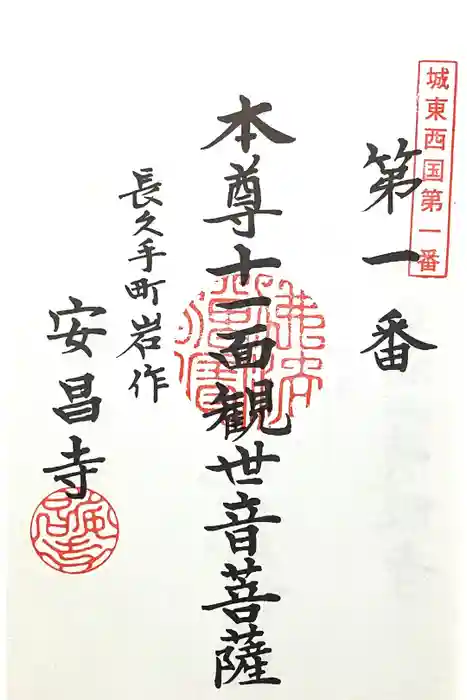 城東西国第一番
第一番
本尊十一面観世音菩薩
長久手町岩作
安昌寺